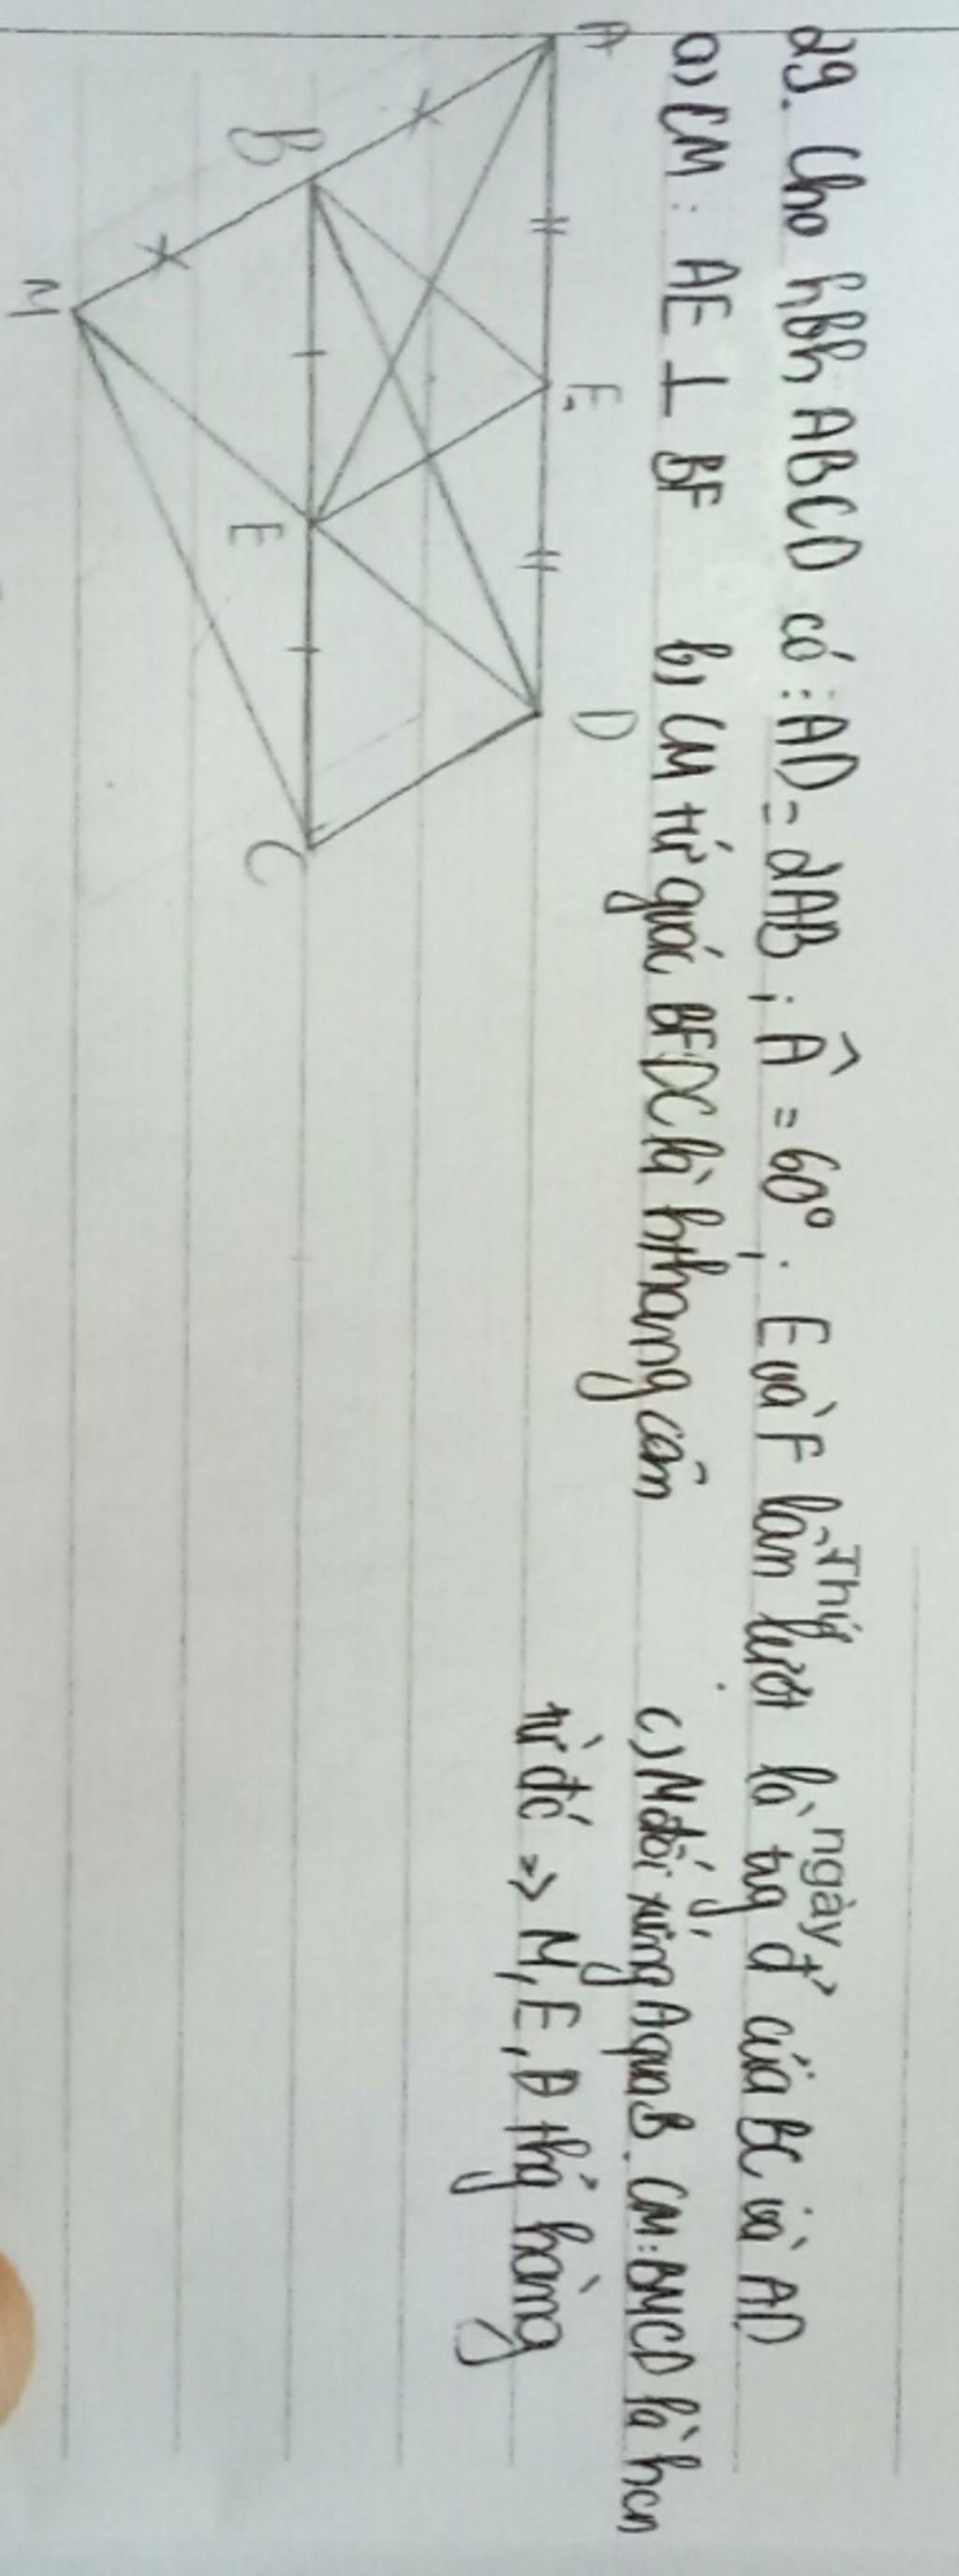 Thứ ngày
29. Cho hbh ABCD có : AD = 2AB ; Â = 60° . E và F lần lượt là tg đ' của BC và AD
a) CM : AE ⊥ BF b) CM tứ giác BFDC là hthang cân c) M đối xứng A qua B. CM: BMCD là hcn
từ đó => M, E, D thg hàng
A F D
B E C
M